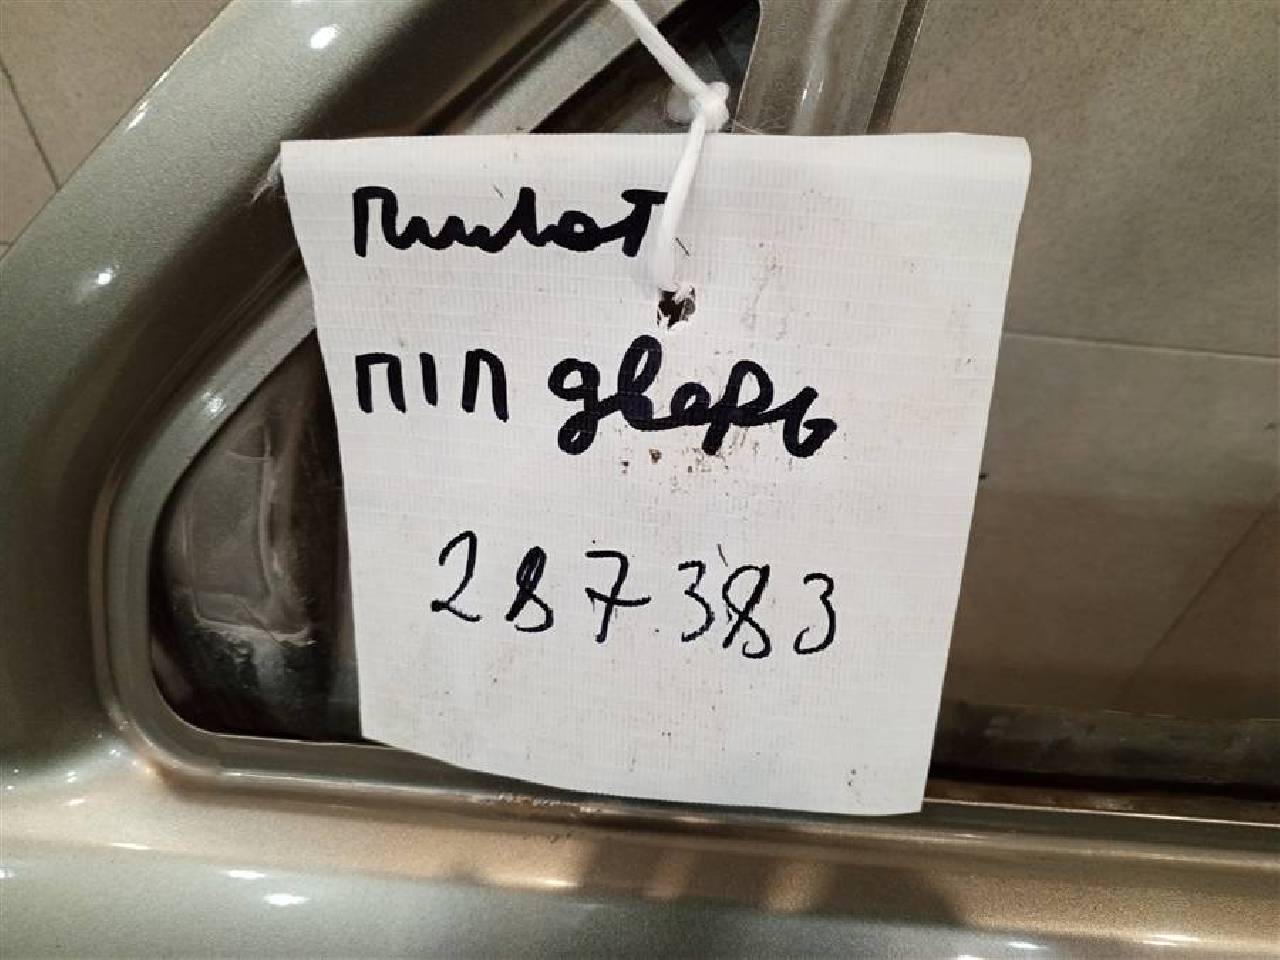 Пилот
П1П дверь
287383